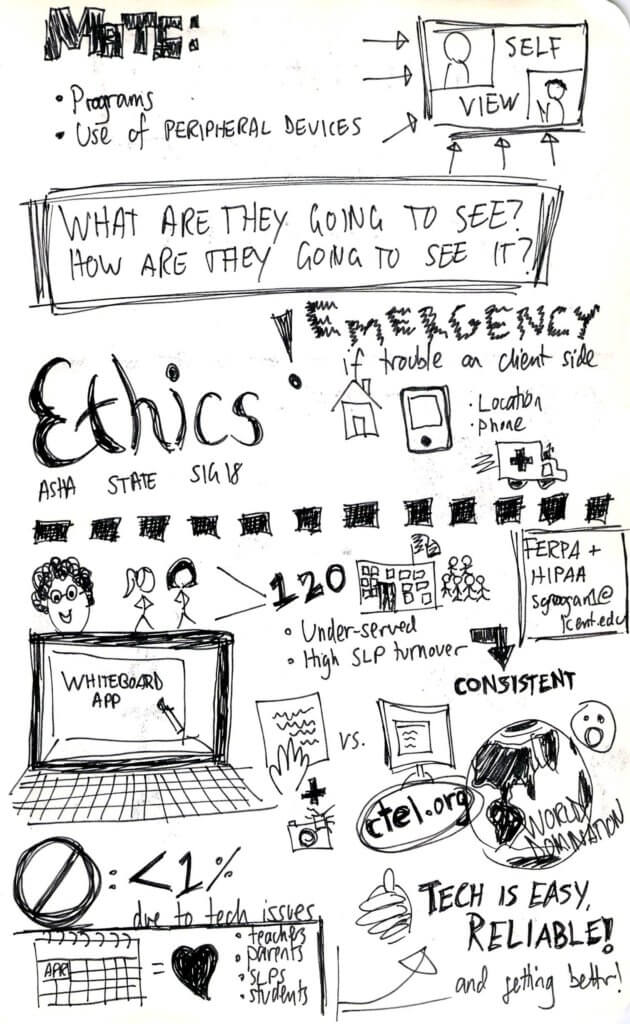 MATE:
• Programs
• Use of PERIPHERAL DEVICES
SELF
VIEW
WHAT ARE THEY GOING TO SEE?
HOW ARE THEY GOING TO SEE IT?
! EMERGENCY
if trouble on client side
• Location
• phone
Ethics
ASHA STATE SIG 18
FERPA +
HIPAA
120
• Under-served
• High SLP turnover
CONSISTENT
WHITEBOARD
APP
vs.
ctel.org
WORLD
DOMINATION
: <1%
due to tech issues
APR
=
• teachers
• parents
• SLPs
• students
TECH IS EASY,
RELIABLE!
and getting better!